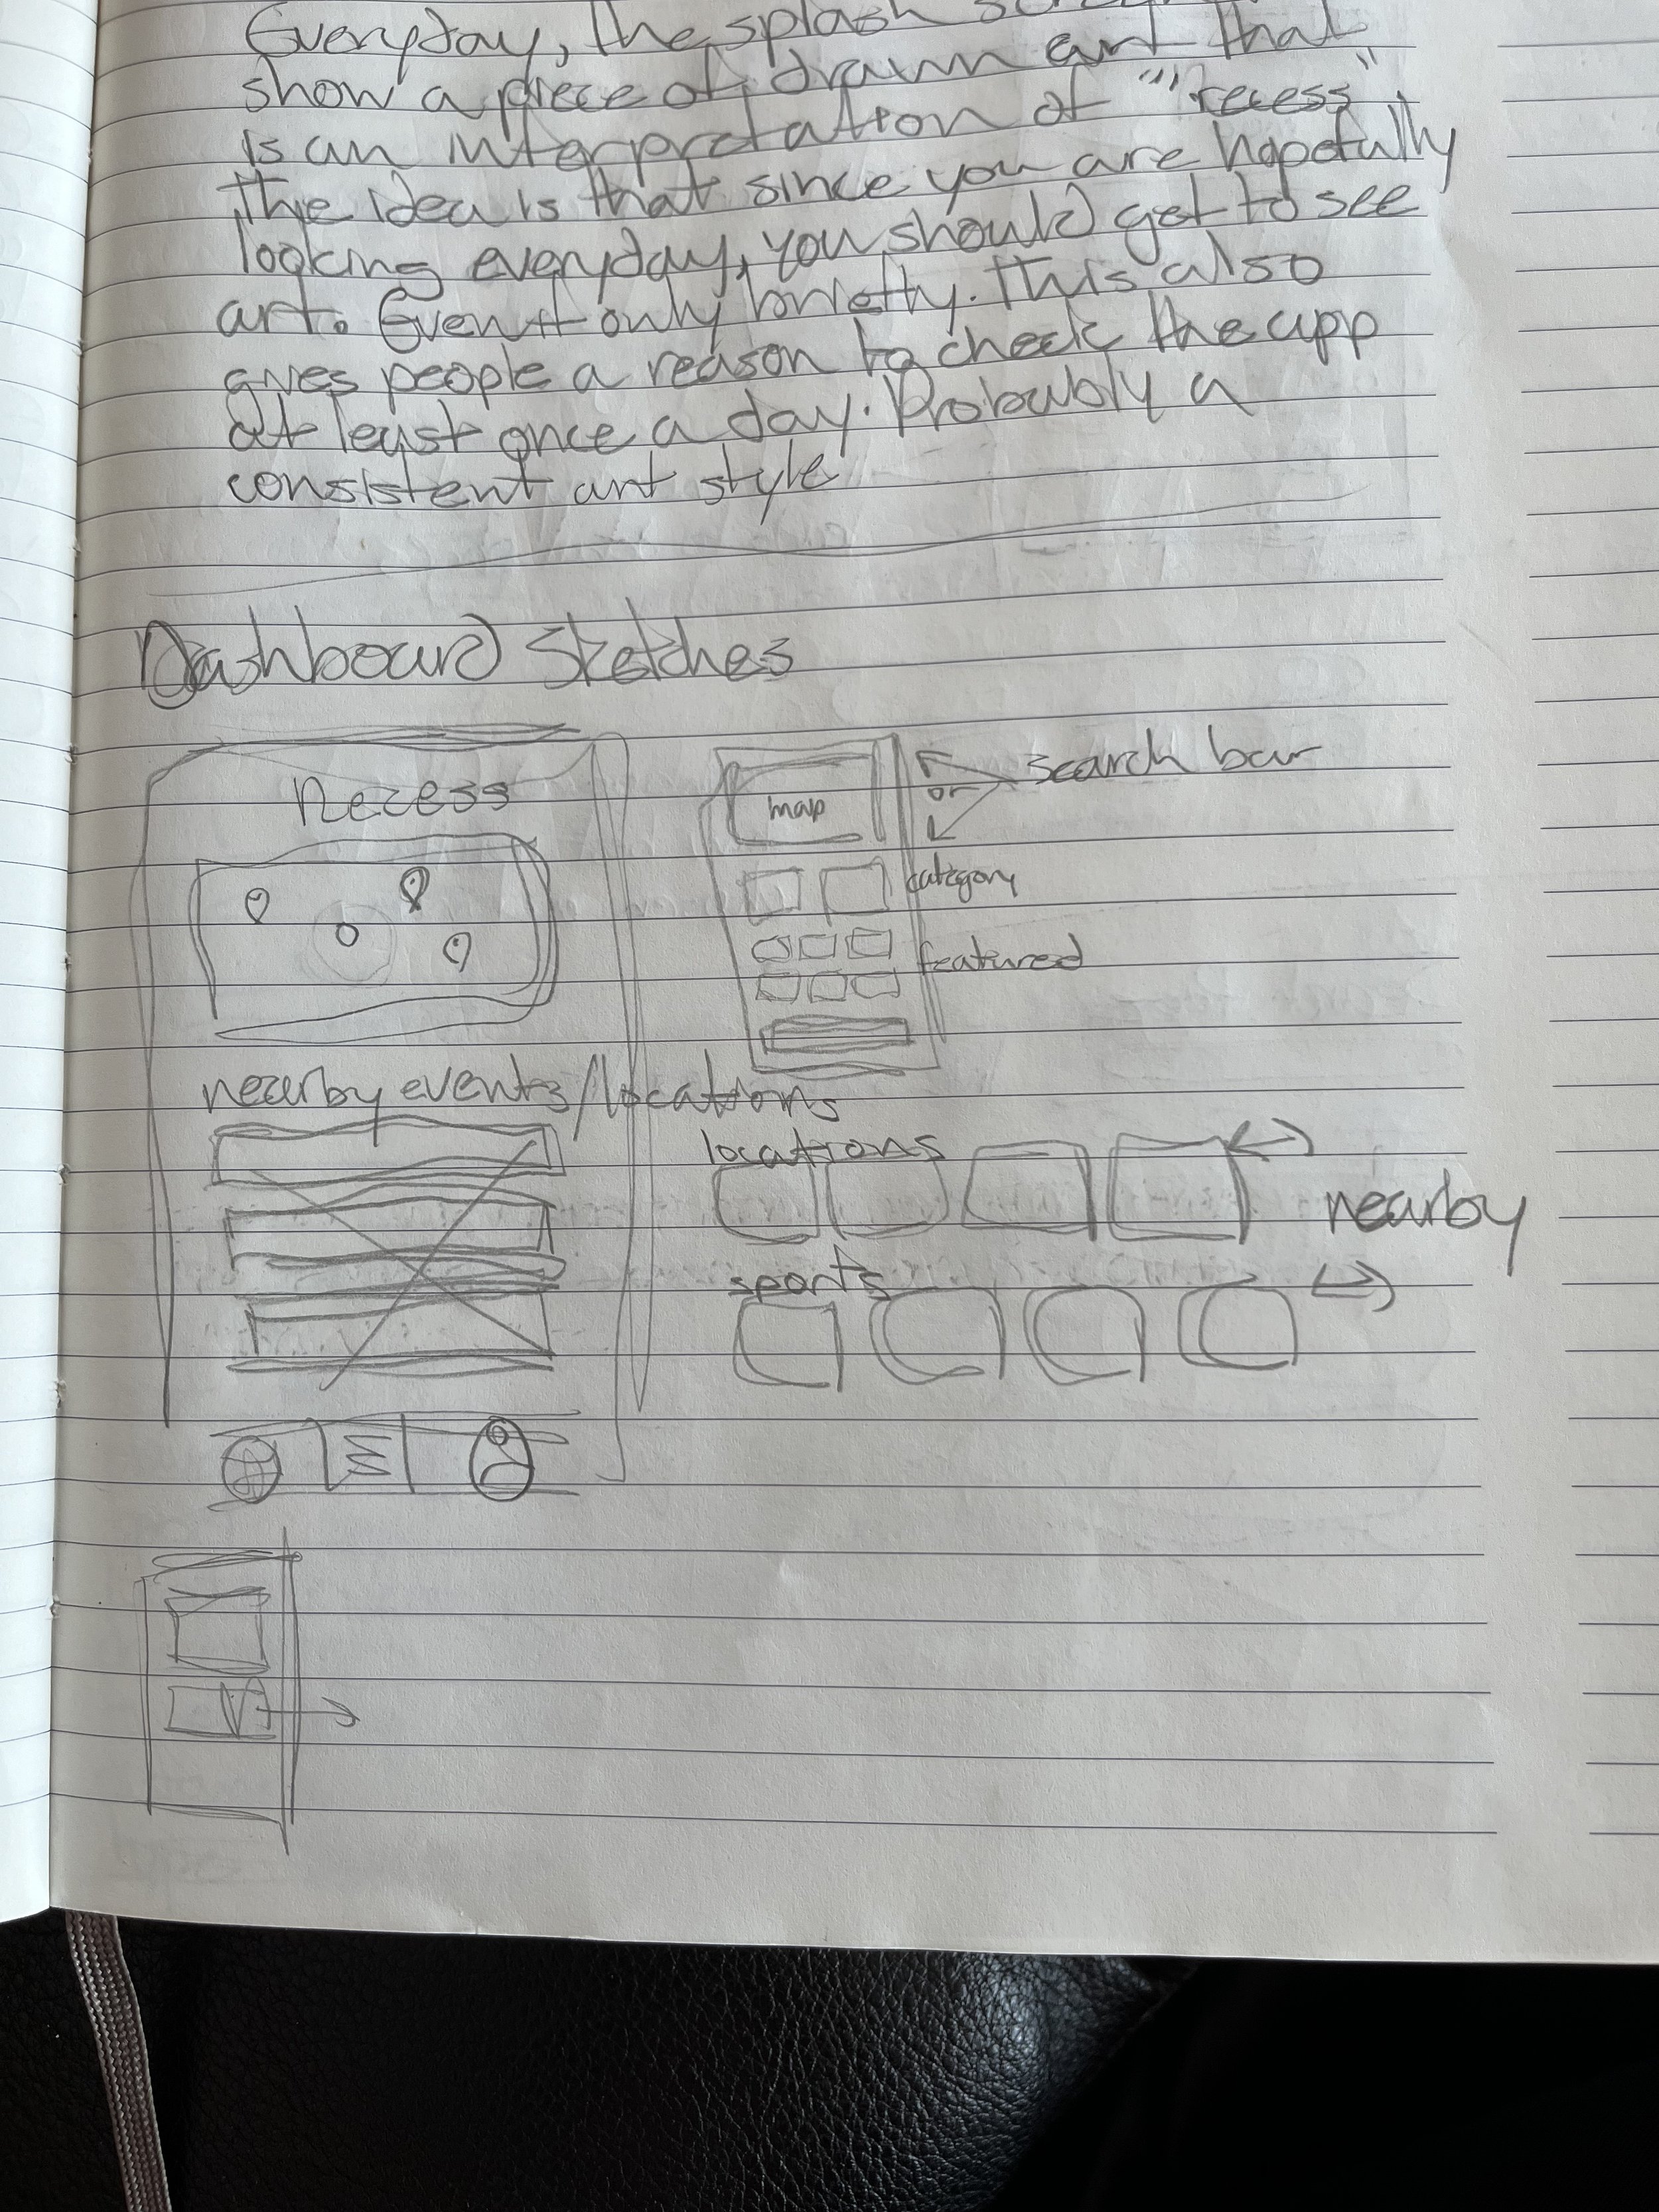 Everyday, the splash
show a piece of drawn art that
is an interpretation of "recess"
The idea is that since you are hopefully
looking everyday, you should get to see
art. Even if only briefly. This also
gives people a reason to check the app
at least once a day. Probably a
consistent art style
Dashboard Sketches
Recess
map
or
search bar
category
featured
nearby events/locations
locations
nearby
sports